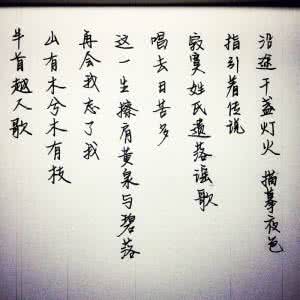 沿途千盏灯火 描摹夜色
指引着传说
寂寞姓氏遗落谣歌
唱去日苦多
这一生擦肩黄泉与碧落
再会我忘了我
山有木兮木有枝
牛首越人歌